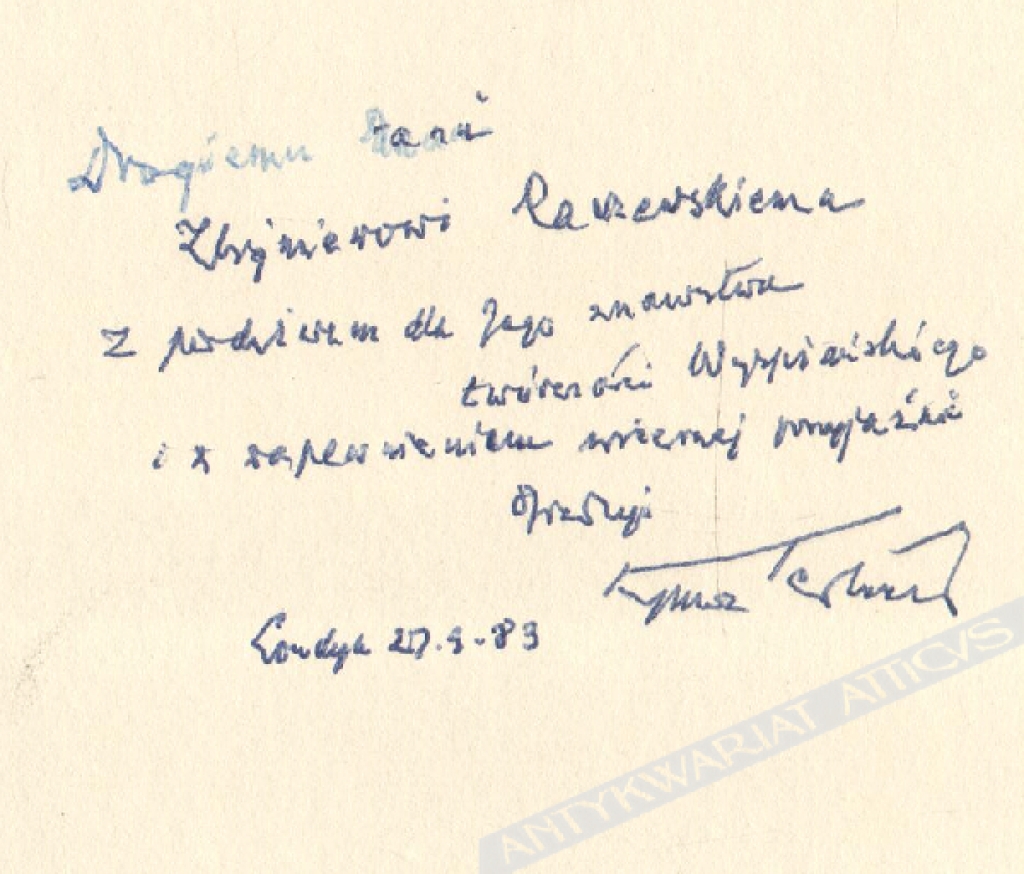 Drogiemu Panu
Zbigniewowi Raszewskiemu
z podziwem dla Jego znawstwa
twórczości Wyspiańskiego
i z zapewnieniem wiernej przyjaźni
Tymon Terlecki
Londyn 27.9.83
ANTYKWARIAT ATTICVS